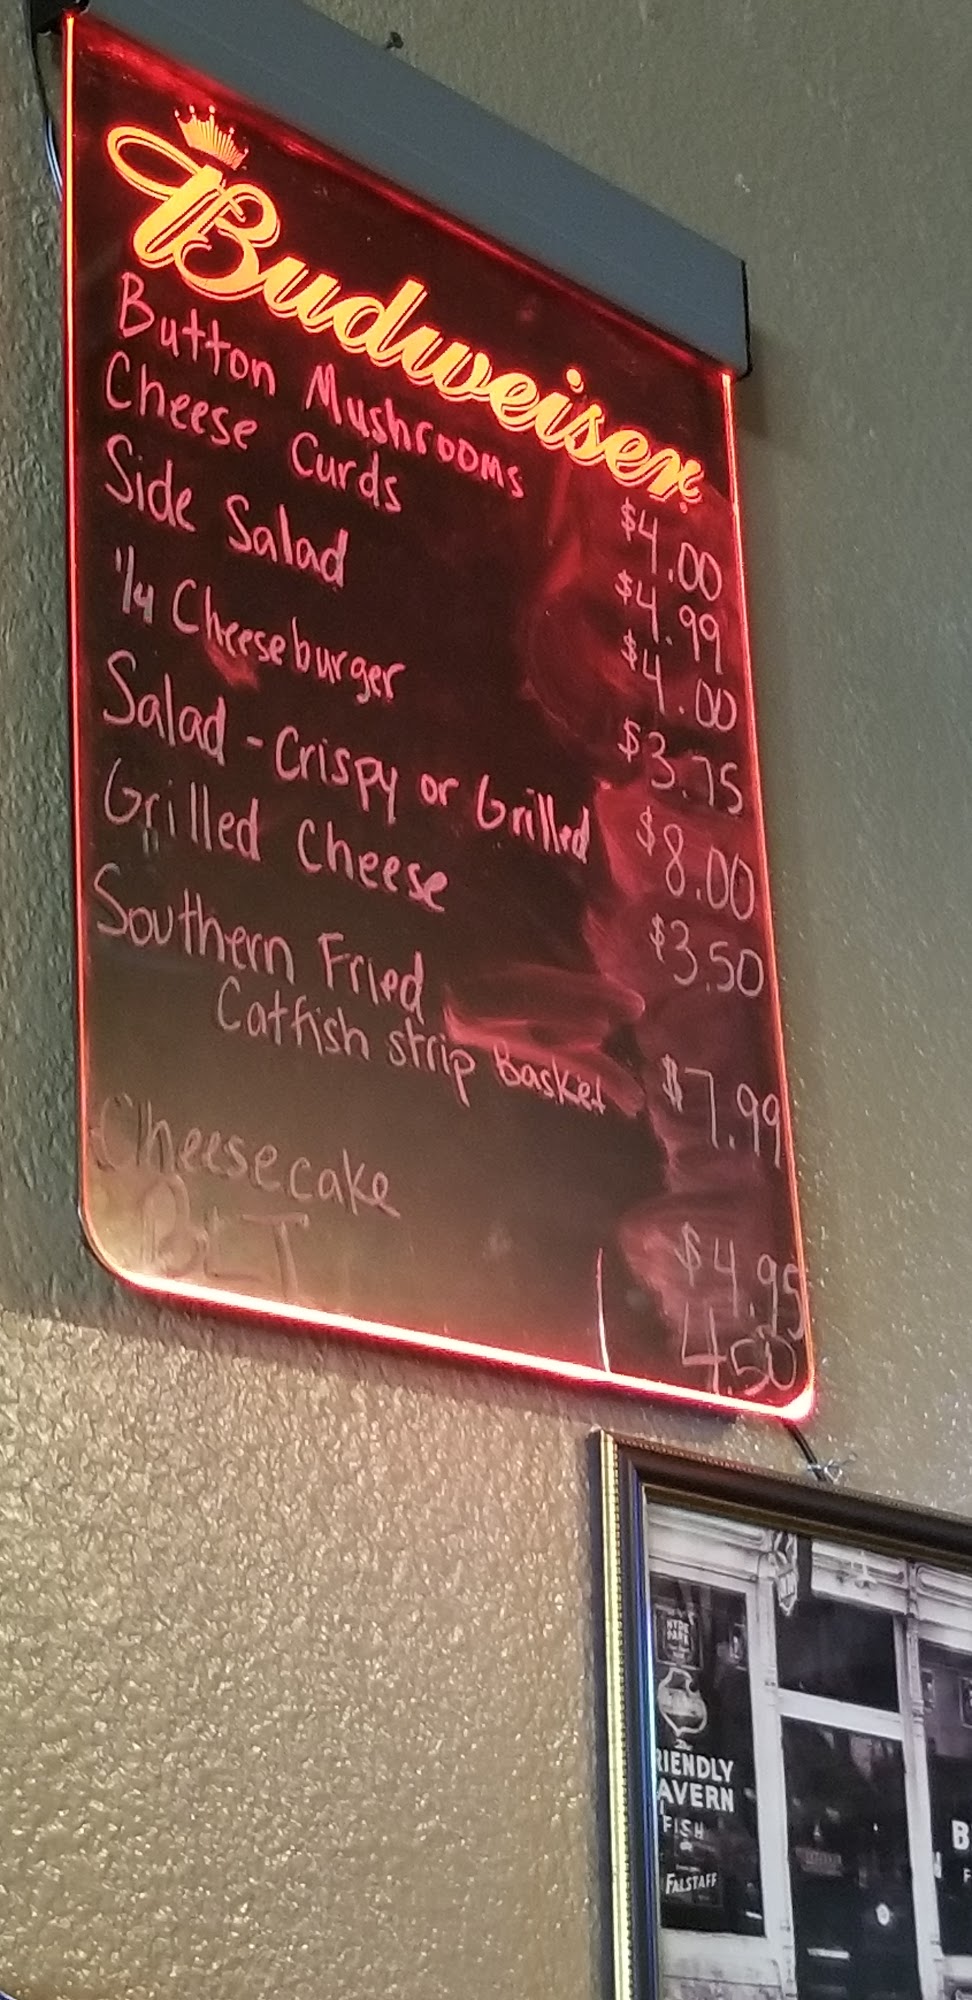 Budweiser
Button Mushrooms $4.00
Cheese Curds $4.99
Side Salad $4.00
1/4 Cheeseburger $3.75
Salad - Crispy or Grilled $8.00
Grilled Cheese $3.50
Southern Fried
Catfish strip Basket $7.99
Cheesecake $4.95
BLT 4.50
HYDE
PARK
RIENDLY
AVERN
FISH
FALSTAFF
B
F